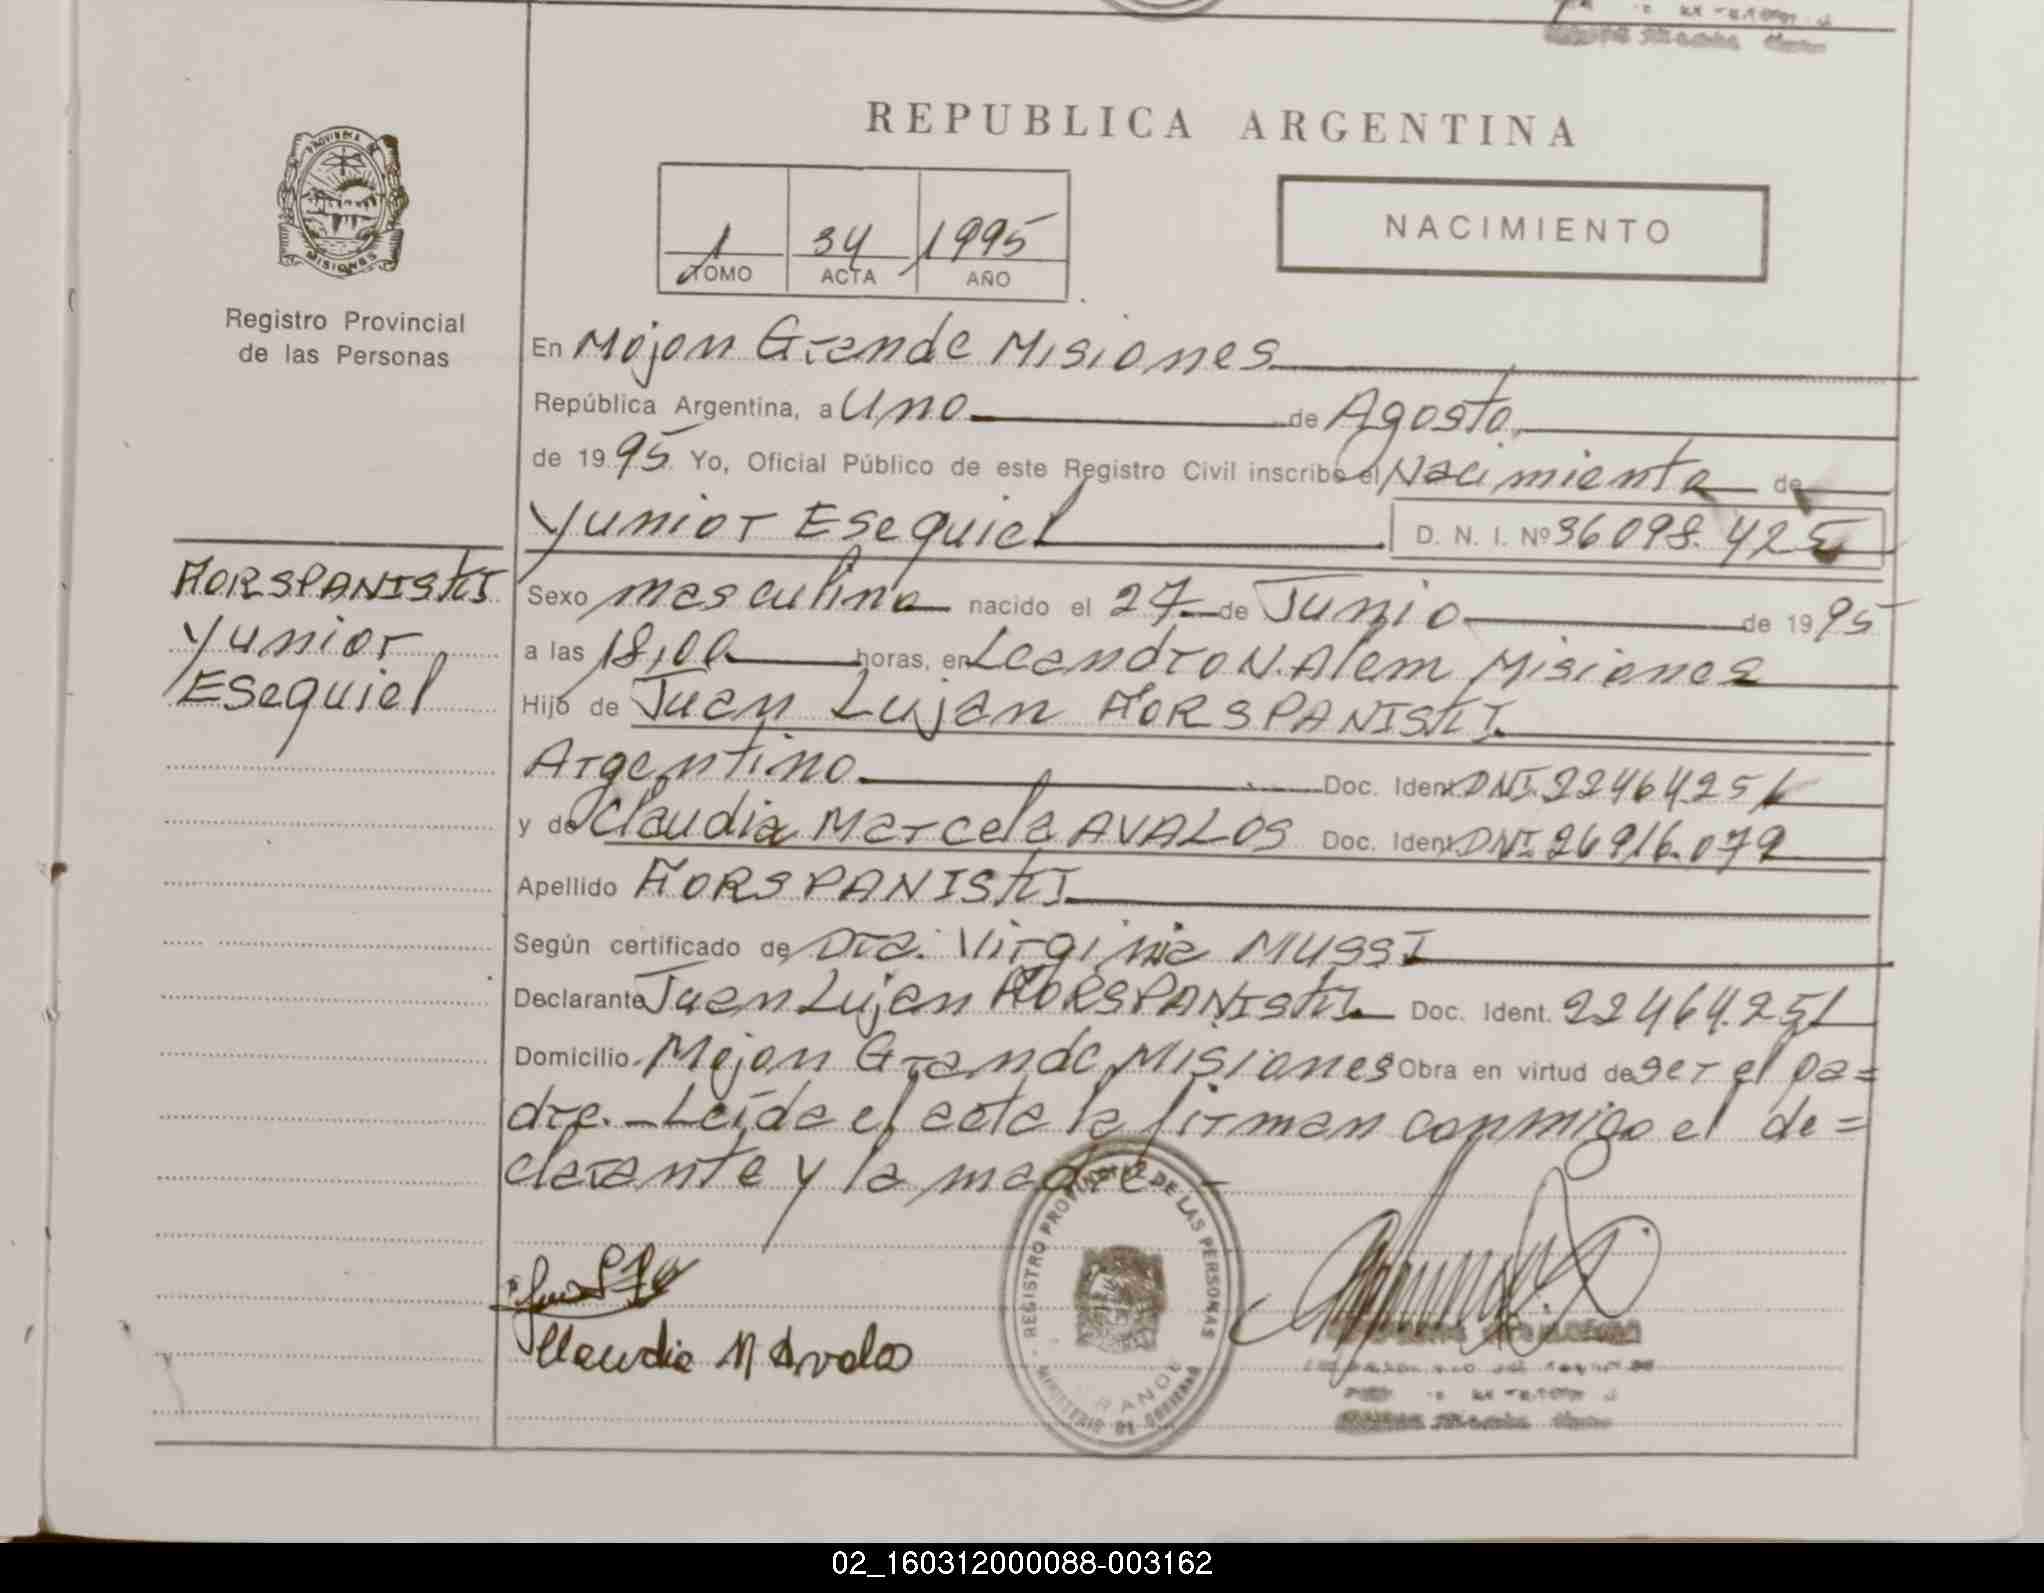 REPUBLICA ARGENTINA
PROVINCIA DE MISIONES
1 34 1995
TOMO ACTA AÑO
NACIMIENTO
Registro Provincial
de las Personas
En Mojon Grande Misiones
República Argentina, a Uno de Agosto
de 1995 Yo, Oficial Público de este Registro Civil inscribo el Nacimiento de
Yunior Esequiel D. N. I. Nº 36098.42
HORSPANISKI
Yunior
Esequiel
Sexo masculino nacido el 27 de Junio de 1995
a las 18,00 horas, en Leandro N. Alem Misiones
Hijo de Juan Lujan HORSPANISKI
Argentino Doc. Ident. DNI. 22464251
y de Claudia Marcela AVALOS Doc. Ident. DNI. 26916.079
Apellido HORSPANISKI
Según certificado de Dra. Virginia MUSSI
Declarante Juan Lujan HORSPANISKI Doc. Ident. 22464.251
Domicilio Mojon Grande Misiones Obra en virtud de ser el pa=
dre. - Leída el acta la firman conmigo el de=
clarante y la madre. -
REGISTRO PROVINCIAL DE LAS PERSONAS
MINISTERIO DE GOBIERNO
Claudia M Avalos
02_160312000088-003162